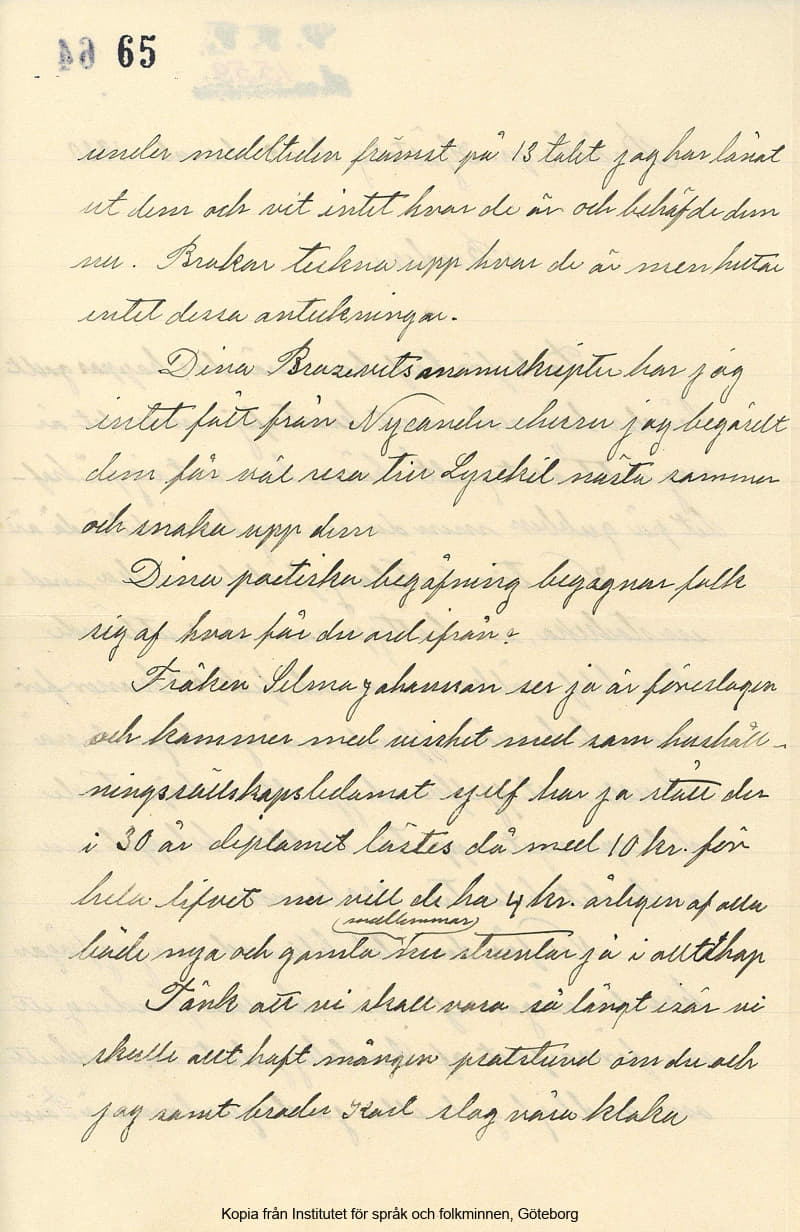 64 65
under medeltiden främst på 13 talet jag har lånat
ut dem och vet intet hvar de är och behäfde dem
nu. Brukar teckna upp hvar de är men hittar
intet dessa anteckningar.
Dina manuskripter har jag
intet fått från Nycander ehuru jag begärdt
dem får väl resa till Lysekil nästa sommer
och snoka upp dem
Dina poetiska begåfning begagnar folk
sig af hvar får du ord ifrån?
Fröken Selma Johansson ser ja är föreslagen
och kommer med visshet med som hushåll-
ningssällskapsledamot sjelf har ja stått der
i 30 år diplomet löstes då med 10 kr. för
hela lifvet nu vill de ha 4 kr. årligen af alla
(medlemmar)
både nya och gamla nu struntar jå i allt ihop
Tänk att vi skall vara så långt isär vi
skulle allt haft mången pratstund om du och
jag samt broder Karl slog våra kloka
Kopia från Institutet för språk och folkminnen, Göteborg